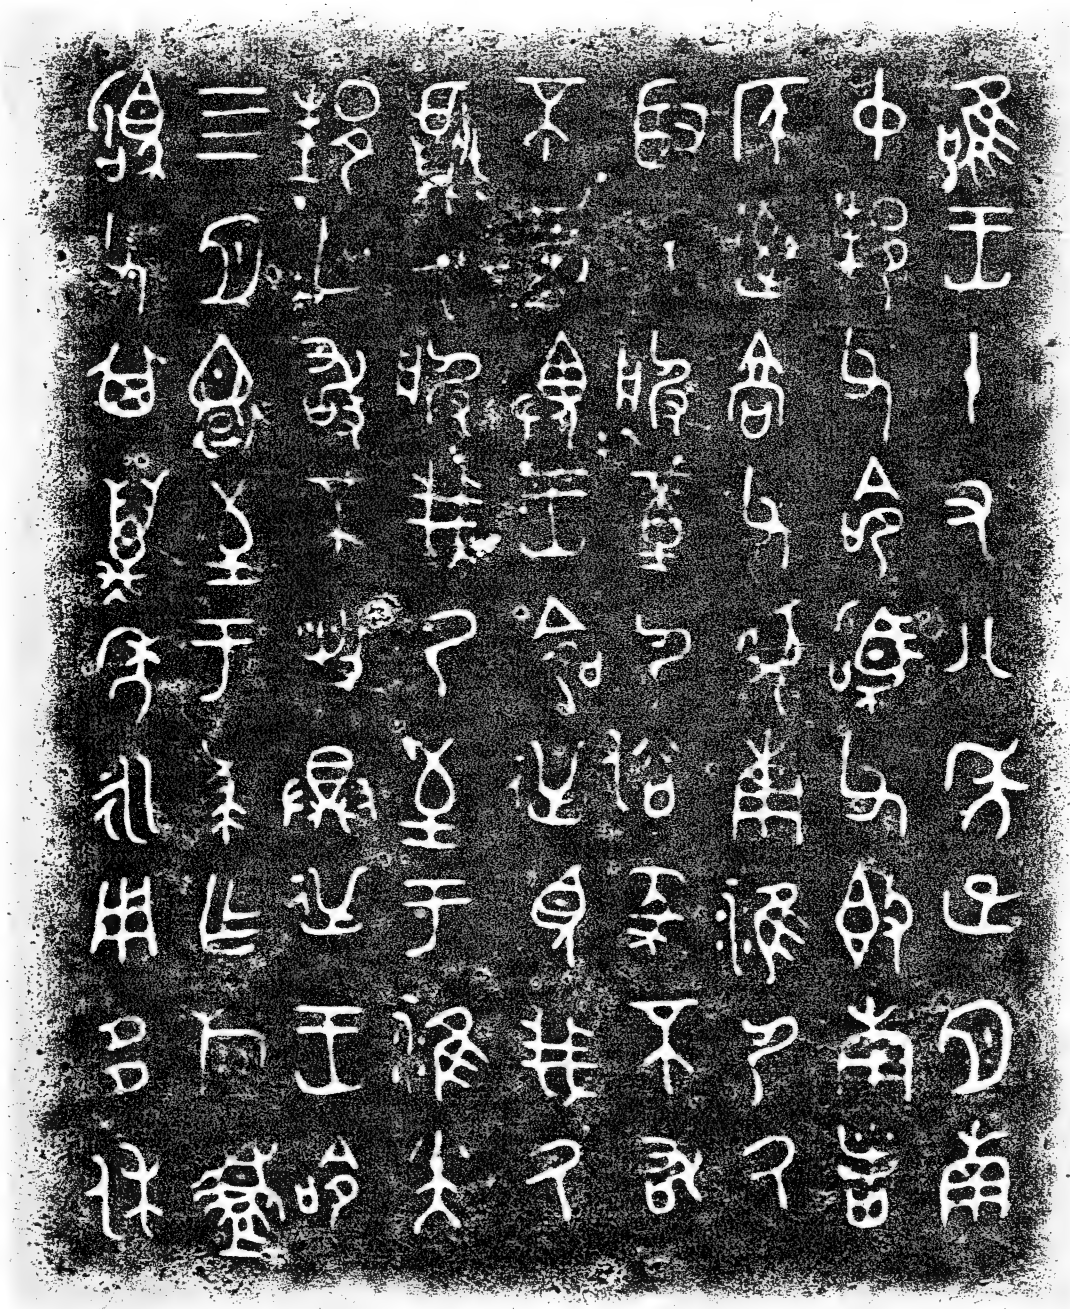 隹王十又八年正月南
中邦父命駒父即南者
侯達高父見南淮尸氒
取氒服堇尸俗豕不敢
不敬畏王命逆見我氒
獻氒服我乃至于淮小大
邦亡敢不具逆王命
四月還至于蔡乍旅盨
駒父其萬年永用多休